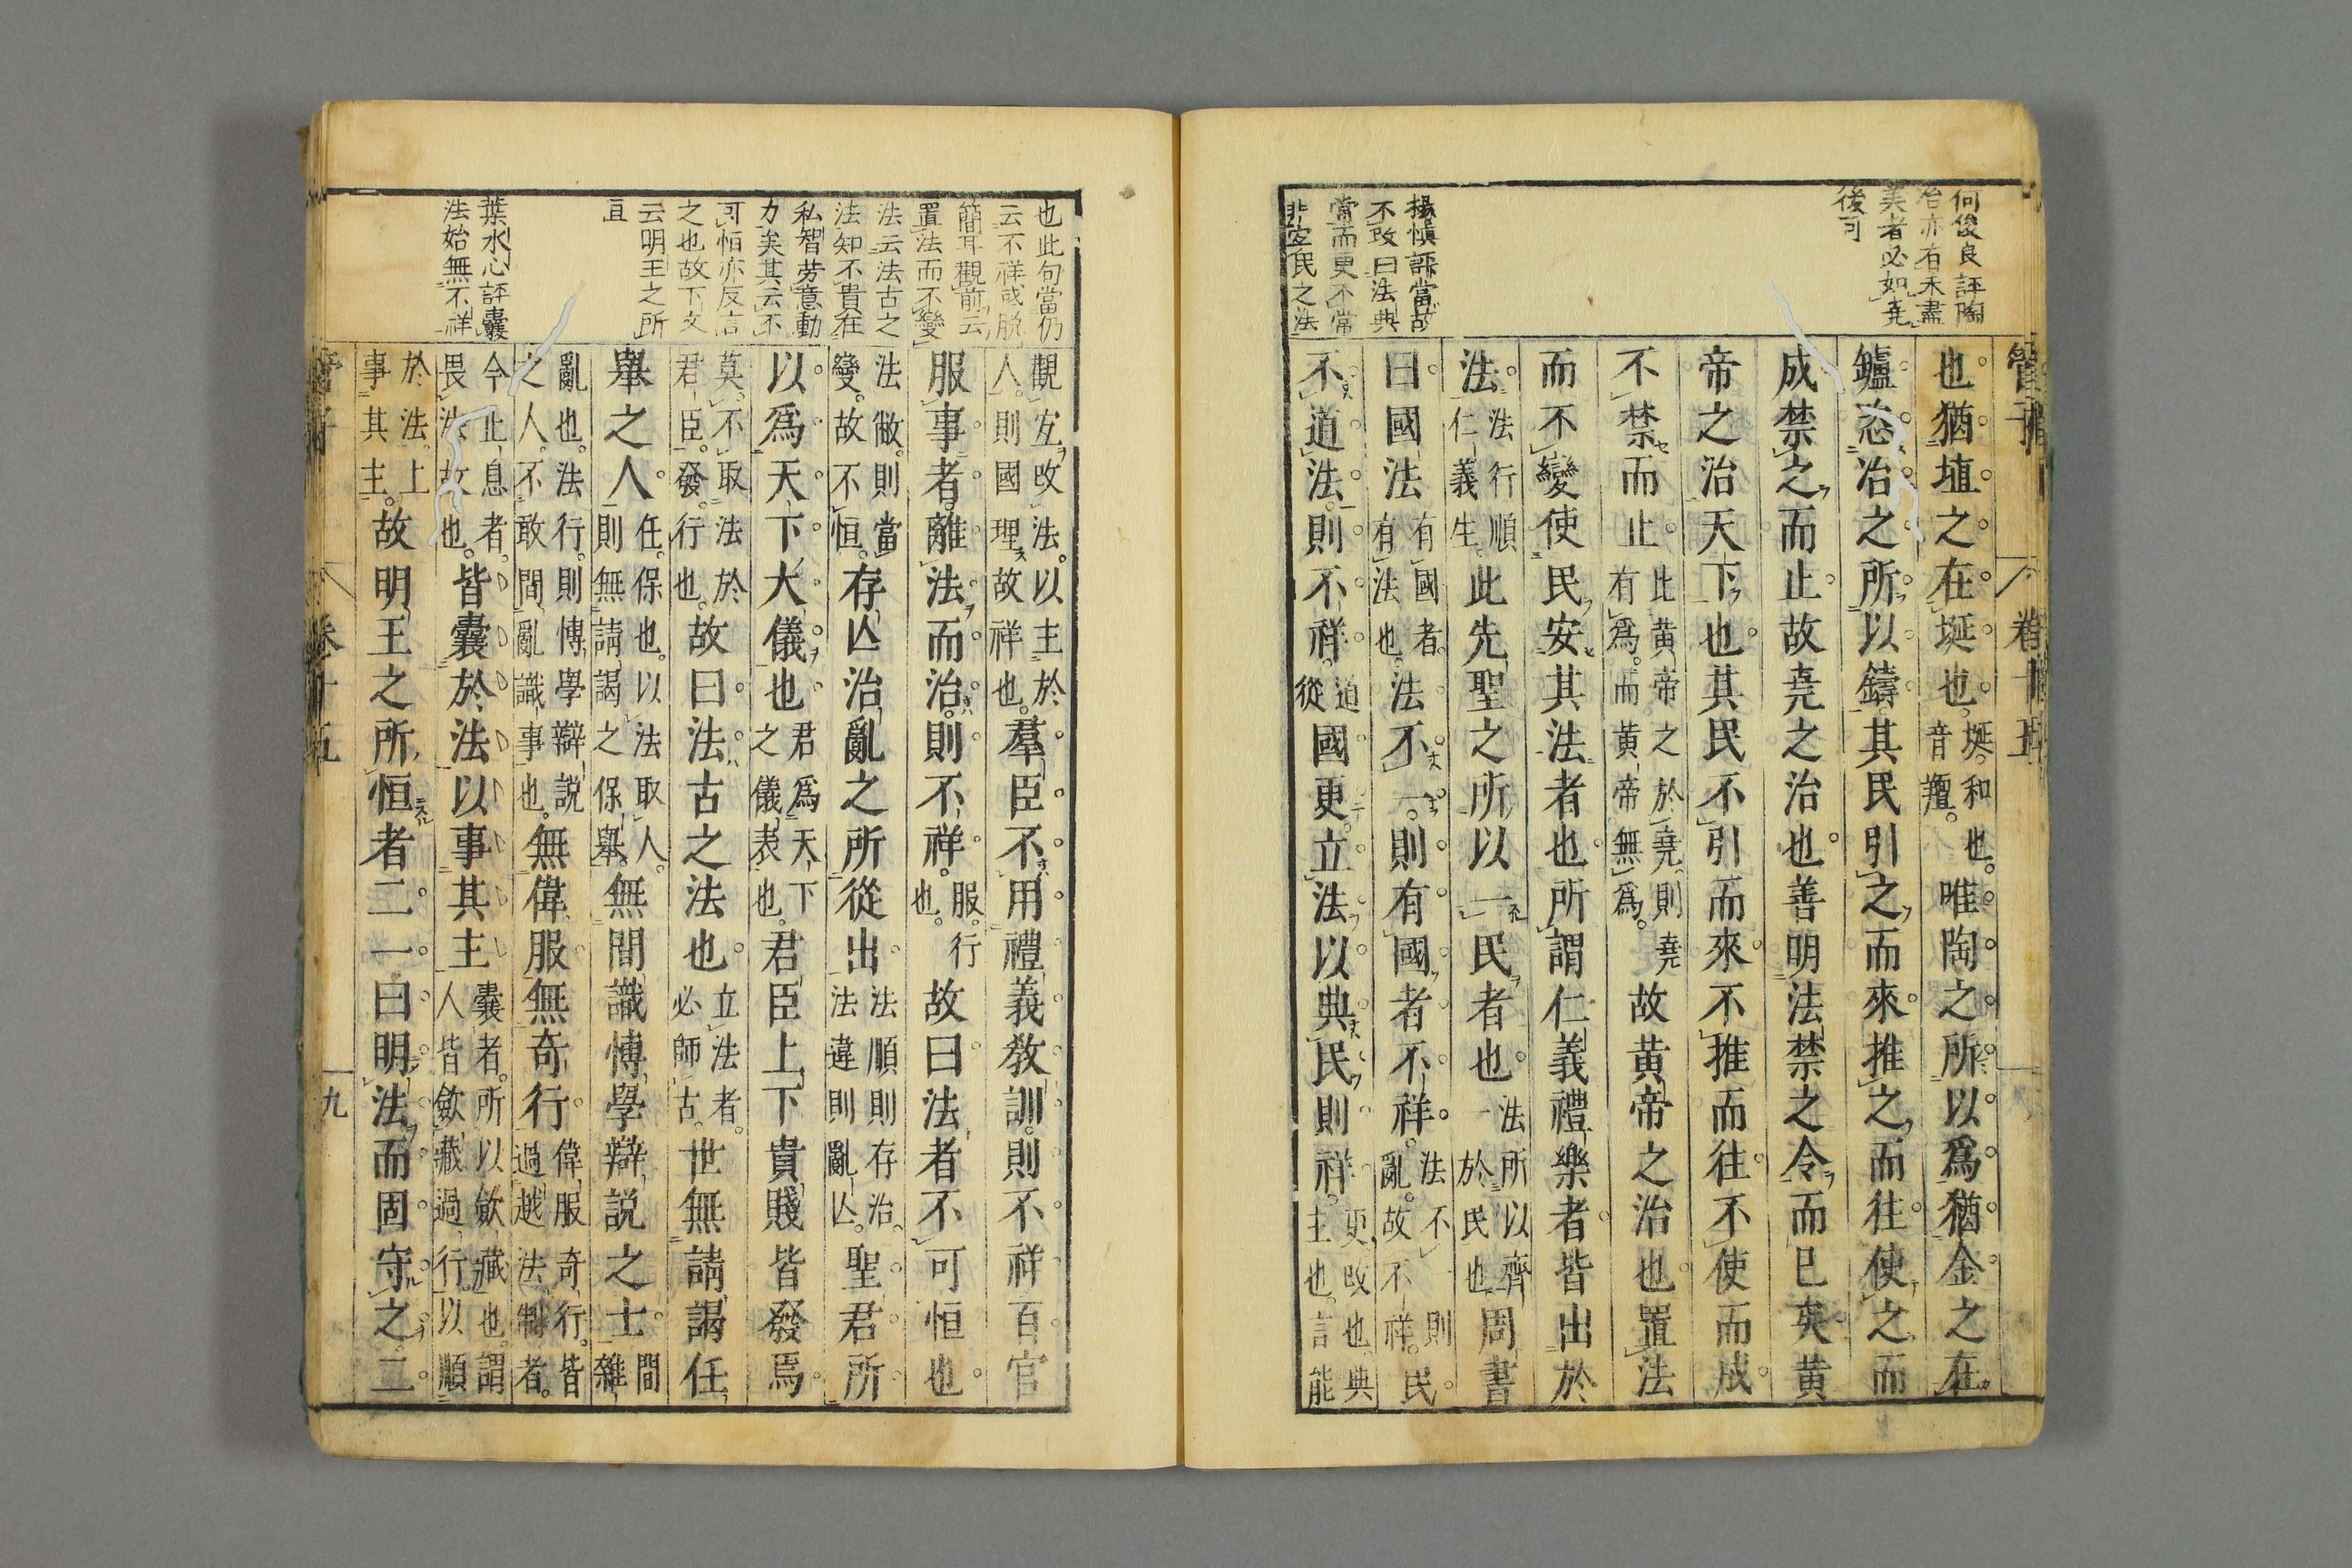 何俊良評陶
冶亦有未盡
美者必如堯
後可
楊慎評當故
不攺曰法典
常而更不常
非安民之法
管子 卷十五
也猶埴之在埏也埏和也音羶唯陶之所以爲猶金之在
鑪恣冶之所以鑄其民引之而來推之而往使之而
成禁之而止故堯之治也善明法禁之令而已矣黄
帝之治天下也其民不引而來不推而往不使而成
不禁而止此黄帝之於堯則堯有爲而黄帝無爲故黄帝之治也置法
而不變使民安其法者也所謂仁義禮樂者皆出於
法法行順仁義生此先聖之所以一民者也法所以齊一於民也周書
曰國法有國者有法也法不一則有國者不祥法不一則亂故不祥民
不道法則不祥道從國更立法以典民則祥更攺也典主也言能
也此句當仍
云不祥或脱
簡耳觀前云
置法而不變
法云法古之
法知不貴在
私智勞意動
力矣其云不
可恒亦反言
之也故下文
云明王之所
亘
葉水心評囊
法始無不祥
觀宐攺法以主於人則國理故祥也羣臣不用禮義教訓則不祥百官
服事者離法而治則不祥服行也故曰法者不可恒也
法敝則當變故不恒存亾治亂之所從出法順則存治法違則亂亾聖君所
以爲天下大儀也君爲天下之儀表也君臣上下貴賤皆發焉
莫不取法於君臣發行也故曰法古之法也立法者必師古世無請謁任
舉之人任保也以法取人則無請謁之保舉無間識博學辯説之士間雜
亂也法行則博學辯説之人不敢間亂識事也無偉服無奇行偉服奇行皆過越法制者
令止息者畏法故也皆囊於法以事其主囊者所以斂藏也謂人皆斂藏過行以順
於法上事其主故明王之所恒者二一曰明法而固守之二
管子 卷十五 九